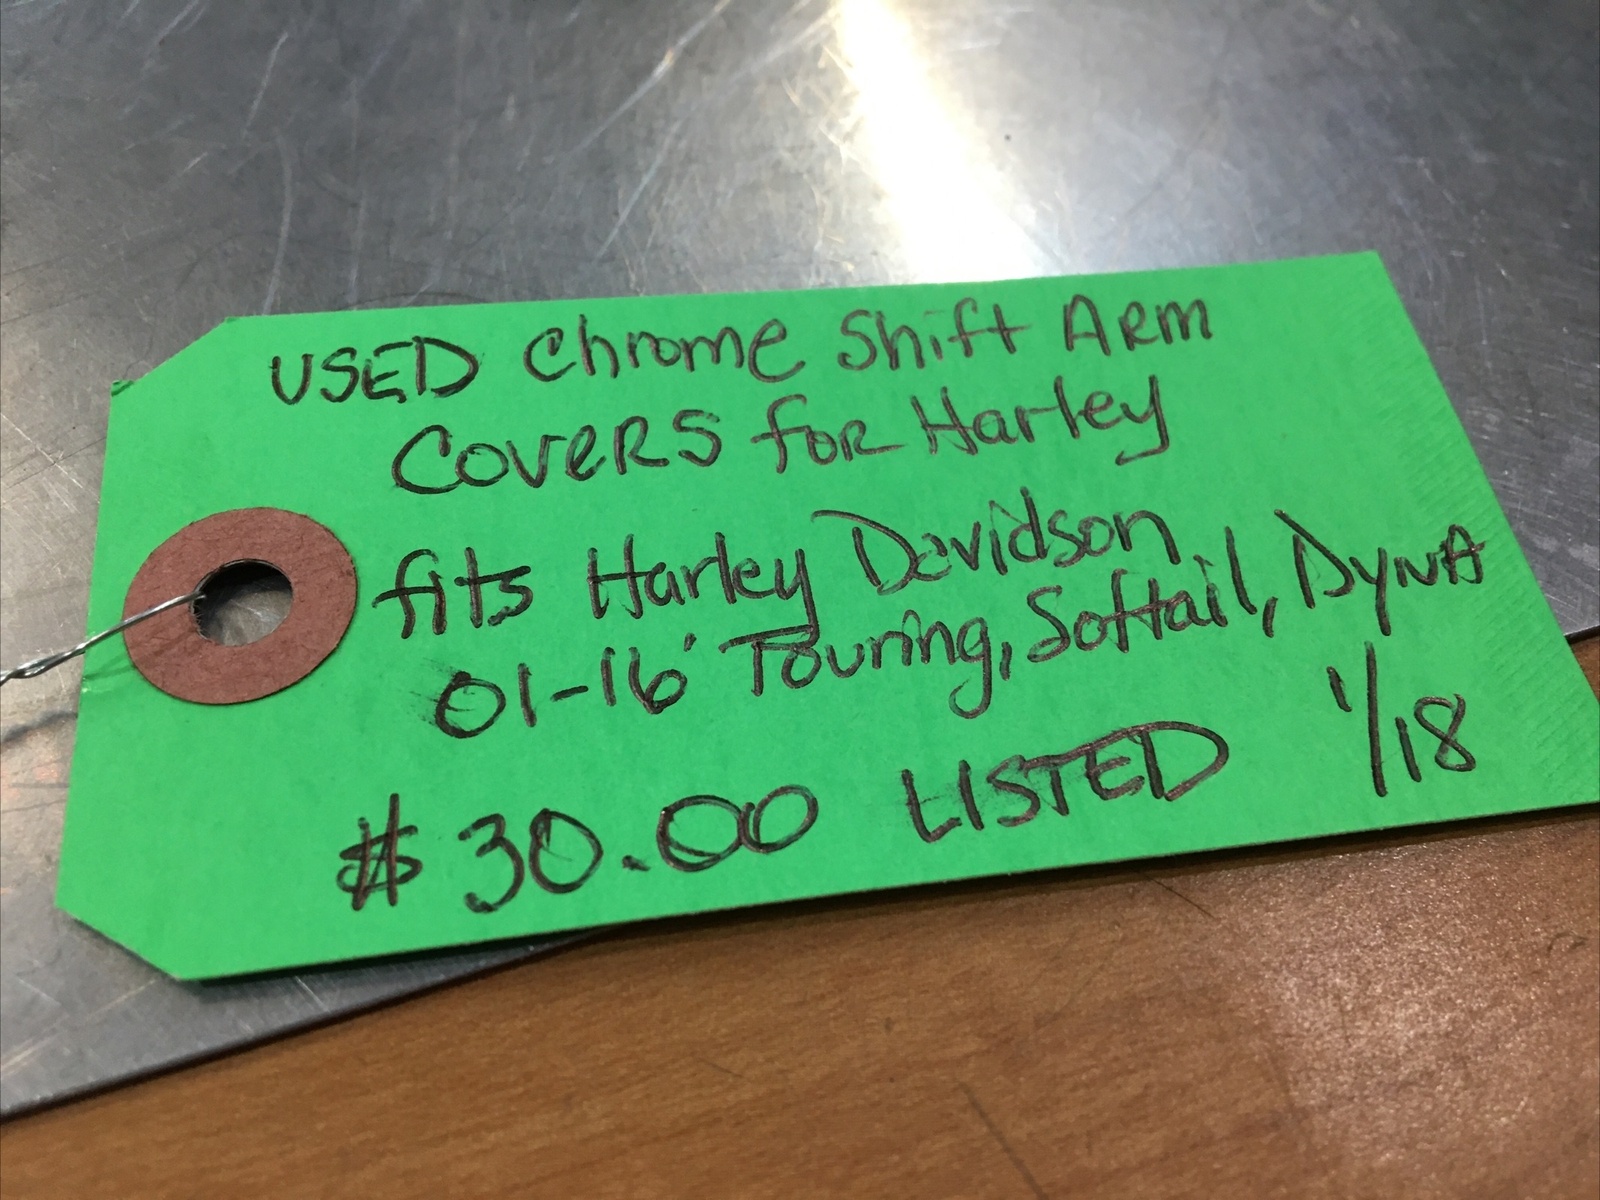 USED Chrome Shift ARM
COVERS FOR Harley
fits Harley Davidson
01-16' Touring, Softail, DYNA
$30.00 LISTED 1/18